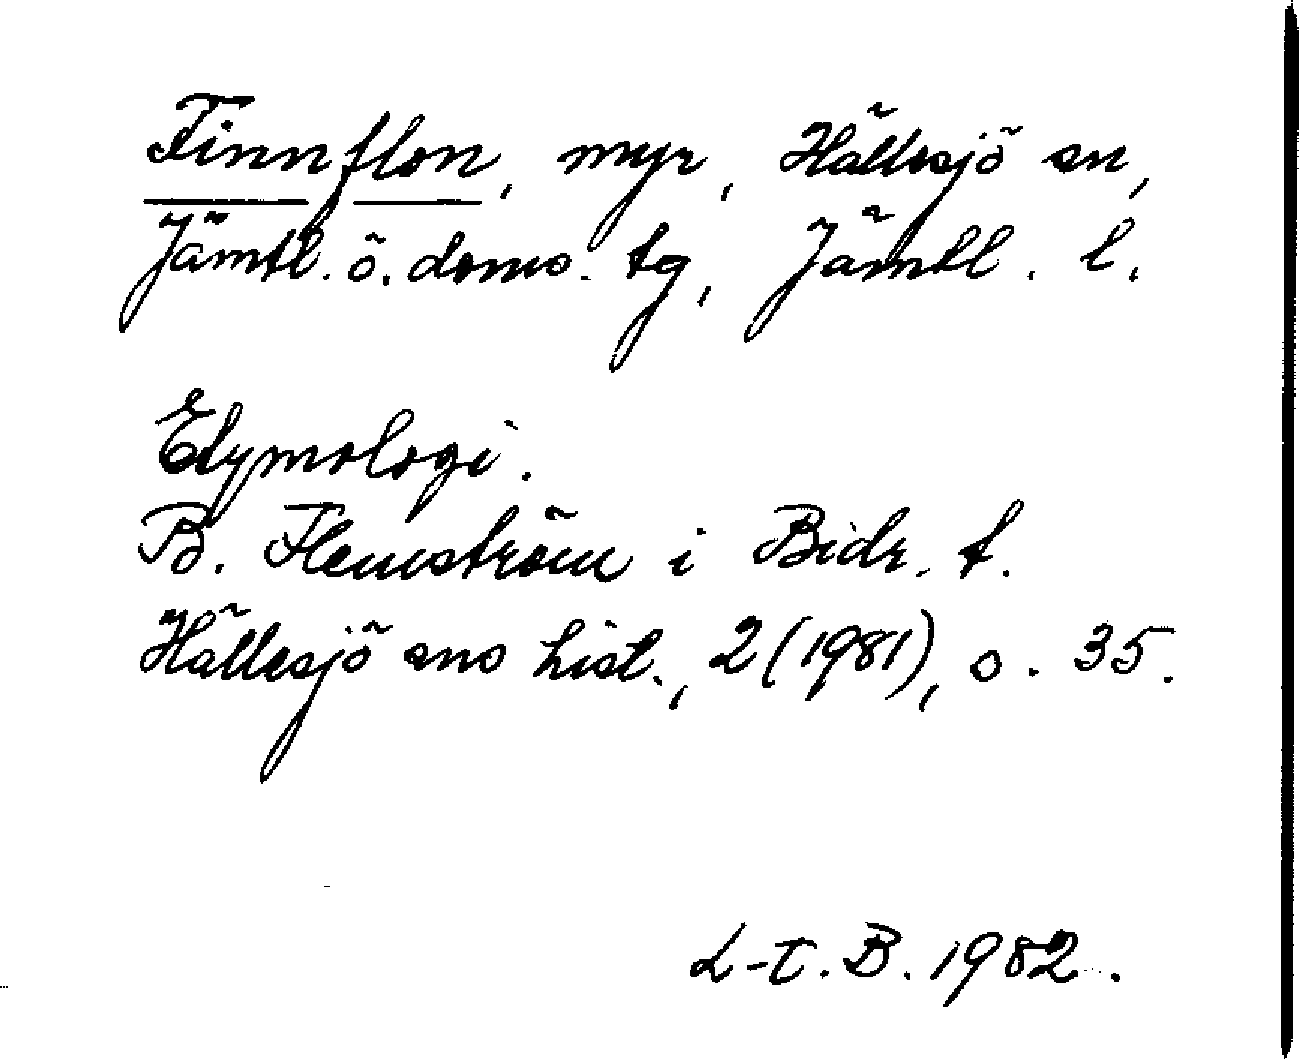 Finnflon, myr, Hällesjö sn,
Jämtl. ö. doms. tg, Jämtl. l.
Etymologi.
B. Flemström i Bidr. t.
Hällesjö sns hist., 2 (1981), s. 35.
L-E. B. 1982.